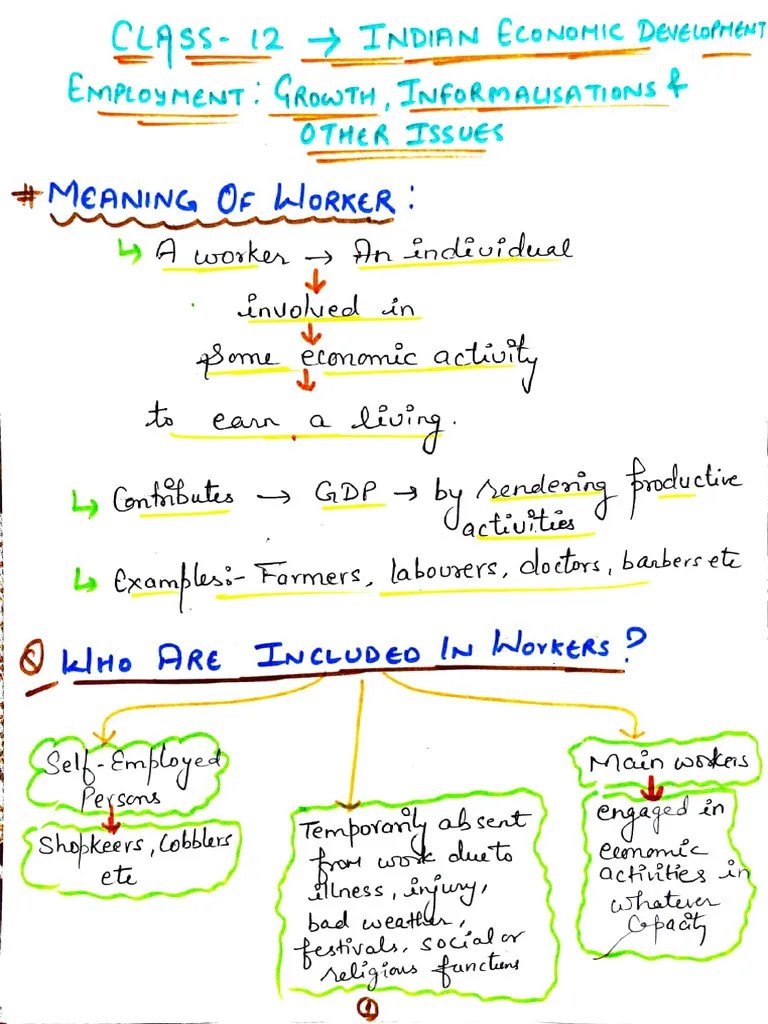 CLASS-12 → INDIAN ECONOMIC DEVELOPMENT
EMPLOYMENT: GROWTH, INFORMALISATIONS &
OTHER ISSUES
# MEANING OF WORKER:
↳ A worker → An individual
↓
involved in
↓
some economic activity
↓
to earn a living.
↳ Contributes → GDP → by rendering productive
activities
↳ Examples:- Farmers, labourers, doctors, barbers etc
Q WHO ARE INCLUDED IN WORKERS?
Self-Employed
Persons
↓
Shopkeers, Cobblers
etc
Temporarily absent
from work due to
illness, injury,
bad weather,
festivals, social or
religious functions
Main workers
↓
engaged in
economic
activities in
whatever
Capacity
1